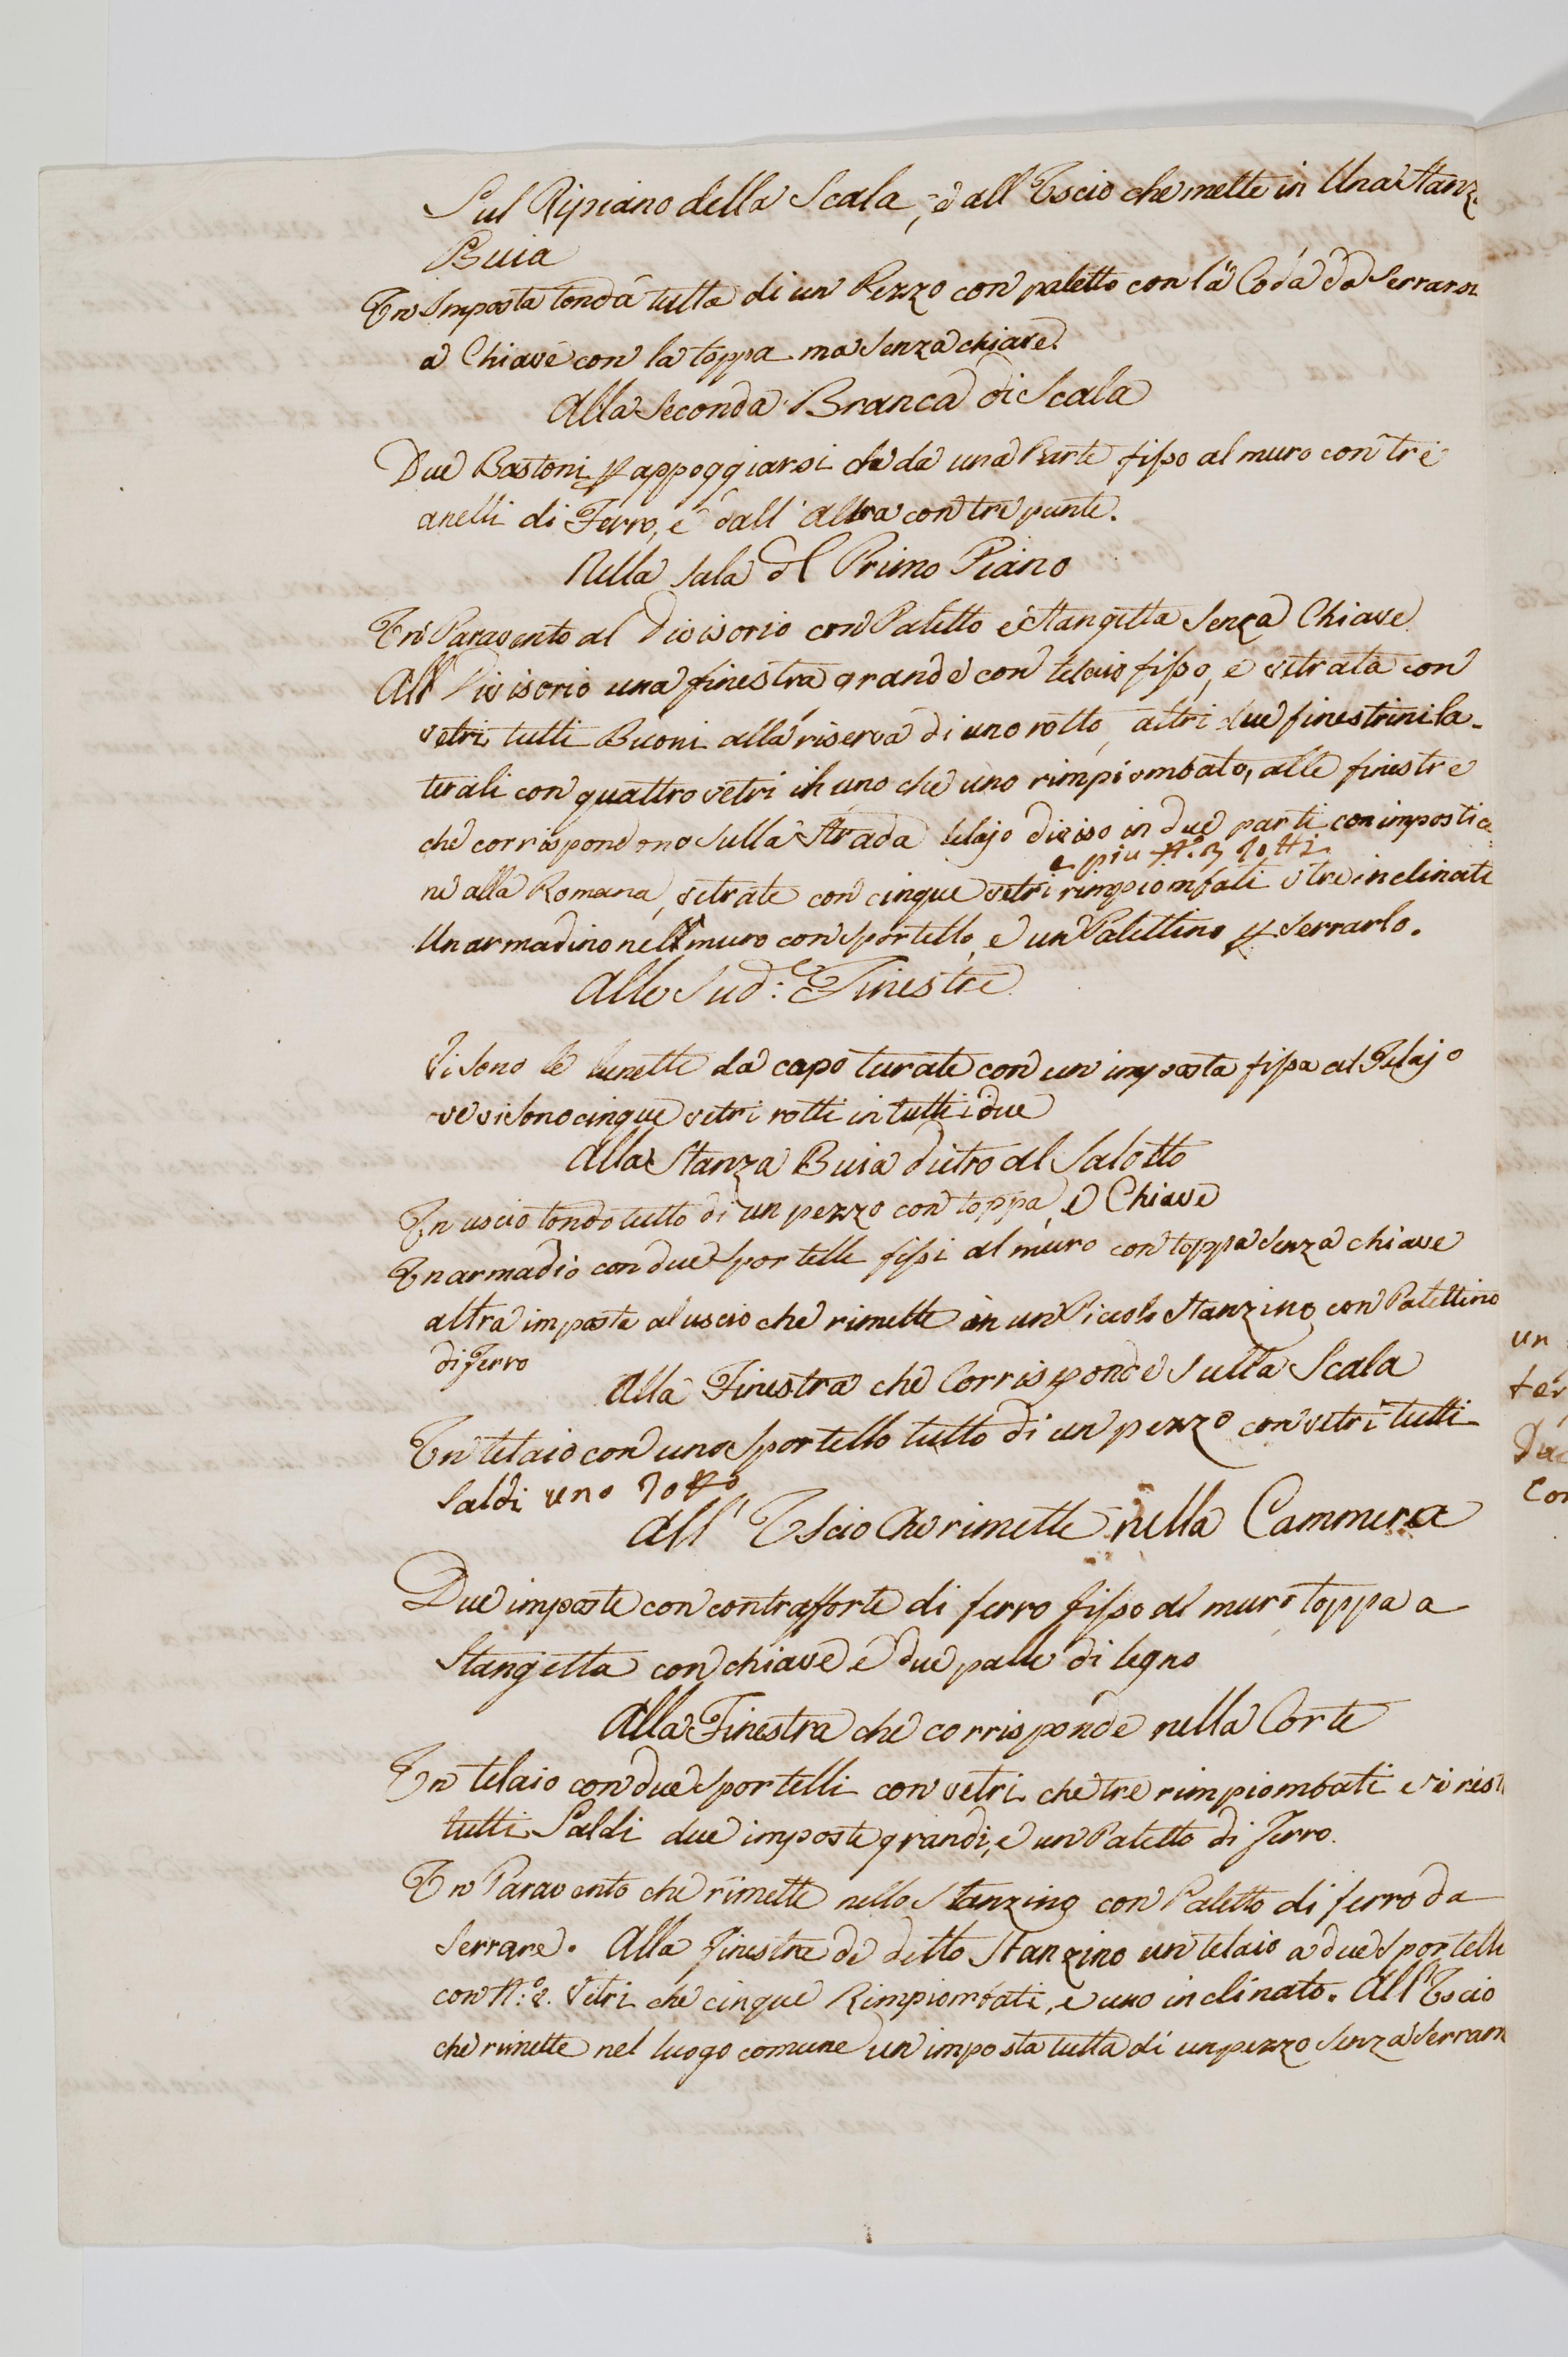 Sul Ripiano della Scala, e all'Uscio che mette in Una Stanz
Buia
Un Imposta tonda tutta di un Pezzo con paletto con la Coda da Serrarsi
a Chiave con la toppa ma senza chiave.
Alla Seconda Branca di Scala
Due Bastoni p appoggiarsi che da una Parte fisso al muro con tre
anelli di Ferro, e dall'altra con tre punte.
Nella Sala del Primo Piano
Un Paravento al Divisorio con Paletto e Stangetta Senza Chiave
All Divisorio una finestra grande con telaio fisso, e vetrata con
vetri tutti Buoni alla riserva di uno rotto, altri due finestrini la-
terali con quattro vetri in uno che uno rimpiombato, alle finestre
che corrispondono sulla Strada telajo diviso in due parti con impostic
e piu N.° 3 Rotti
ne alla Romana, vetrate con cinque vetri rimpiombati e tre inclinati
Un armadino nell muro con Sportello, e un Palettino p Serrarlo.
Alle Sud:e Finestre
Vi sono le lunette da capo turate con un imposta fissa al Telajo
ve vi sono cinque vetri rotti in tutti i due
Alla Stanza Buia dietro al Salotto
Un uscio tondo tutto di un pezzo con toppa, e Chiave
Un armadio con due Sportelli fissi al muro con toppa Senza chiave
altra imposta al uscio che rimette in un Piccolo Stanzino con Palettino
di Ferro
Alla Finestra che Corrisponde Sulla Scala
Un telaio con uno Sportello tutto di un pezzo con vetri tutti
Saldi uno Rotto
All' Uscio che rimette nella Cammera
Due imposte con contrafforte di ferro fisso al muro toppa a
Stangetta con chiave e due palle di legno
Alla Finestra che corrisponde nella Corte
Un telaio con due Sportelli con vetri che tre rimpiombati e i rest
tutti Saldi due imposte grandi, e un Paletto di Ferro.
Un Paravento che rimette nello Stanzino con Paletto di ferro da
Serrare. Alla Finestra di detto Stanzino un telaio a due Sportelli
con N.° 8. Vetri che cinque Rimpiombati, e uno inclinato. All'Uscio
che rimette nel luogo comune un imposta tutta di un pezzo Senza Serram
un
ter
Due
Con